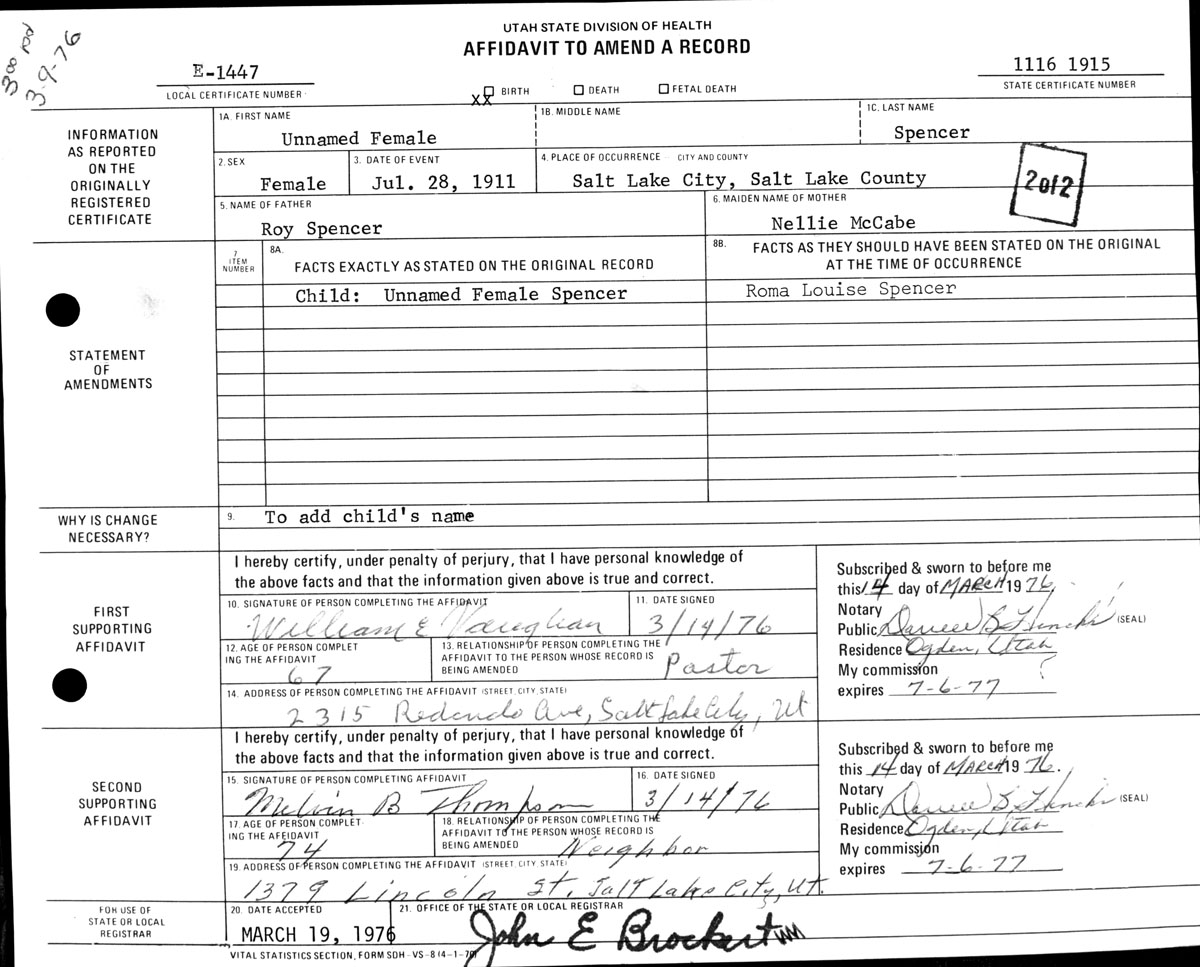 3⁰⁰ pd
3-9-76
UTAH STATE DIVISION OF HEALTH
AFFIDAVIT TO AMEND A RECORD
E-1447
LOCAL CERTIFICATE NUMBER
XX BIRTH DEATH FETAL DEATH
1116 1915
STATE CERTIFICATE NUMBER
INFORMATION
AS REPORTED
ON THE
ORIGINALLY
REGISTERED
CERTIFICATE
1A. FIRST NAME
Unnamed Female
1B. MIDDLE NAME
1C. LAST NAME
Spencer
2. SEX
Female
3. DATE OF EVENT
Jul. 28, 1911
4. PLACE OF OCCURRENCE CITY AND COUNTY
Salt Lake City, Salt Lake County
2 of 2
5. NAME OF FATHER
Roy Spencer
6. MAIDEN NAME OF MOTHER
Nellie McCabe
STATEMENT
OF
AMENDMENTS
7
ITEM
NUMBER
8A.
FACTS EXACTLY AS STATED ON THE ORIGINAL RECORD
8B. FACTS AS THEY SHOULD HAVE BEEN STATED ON THE ORIGINAL
AT THE TIME OF OCCURRENCE
Child: Unnamed Female Spencer
Roma Louise Spencer
WHY IS CHANGE
NECESSARY?
9. To add child's name
FIRST
SUPPORTING
AFFIDAVIT
I hereby certify, under penalty of perjury, that I have personal knowledge of
the above facts and that the information given above is true and correct.
10. SIGNATURE OF PERSON COMPLETING THE AFFIDAVIT
William E Vaughan
11. DATE SIGNED
3/14/76
12. AGE OF PERSON COMPLET
ING THE AFFIDAVIT
67
13. RELATIONSHIP OF PERSON COMPLETING THE
AFFIDAVIT TO THE PERSON WHOSE RECORD IS
BEING AMENDED
Pastor
14. ADDRESS OF PERSON COMPLETING THE AFFIDAVIT (STREET, CITY, STATE)
2315 Redondo Ave, Salt Lake City, Ut
Subscribed & sworn to before me
this 14 day of MARCH 1976,
Notary
Public (SEAL)
Residence Ogden, Utah
My commission
expires 7-6-77
SECOND
SUPPORTING
AFFIDAVIT
I hereby certify, under penalty of perjury, that I have personal knowledge of
the above facts and that the information given above is true and correct.
15. SIGNATURE OF PERSON COMPLETING AFFIDAVIT
Melvin B Thompson
16. DATE SIGNED
3/14/76
17. AGE OF PERSON COMPLET
ING THE AFFIDAVIT
74
18. RELATIONSHIP OF PERSON COMPLETING THE
AFFIDAVIT TO THE PERSON WHOSE RECORD IS
BEING AMENDED
Neighbor
19. ADDRESS OF PERSON COMPLETING THE AFFIDAVIT (STREET, CITY, STATE)
1379 Lincoln St. Salt Lake City, Ut.
Subscribed & sworn to before me
this 14 day of MARCH 1976.
Notary
Public (SEAL)
Residence Ogden, Utah
My commission
expires 7-6-77
FOR USE OF
STATE OR LOCAL
REGISTRAR
20. DATE ACCEPTED
MARCH 19, 1976
21. OFFICE OF THE STATE OR LOCAL REGISTRAR
John E Brockert
VITAL STATISTICS SECTION, FORM SDH-VS-8 (4-1-70)